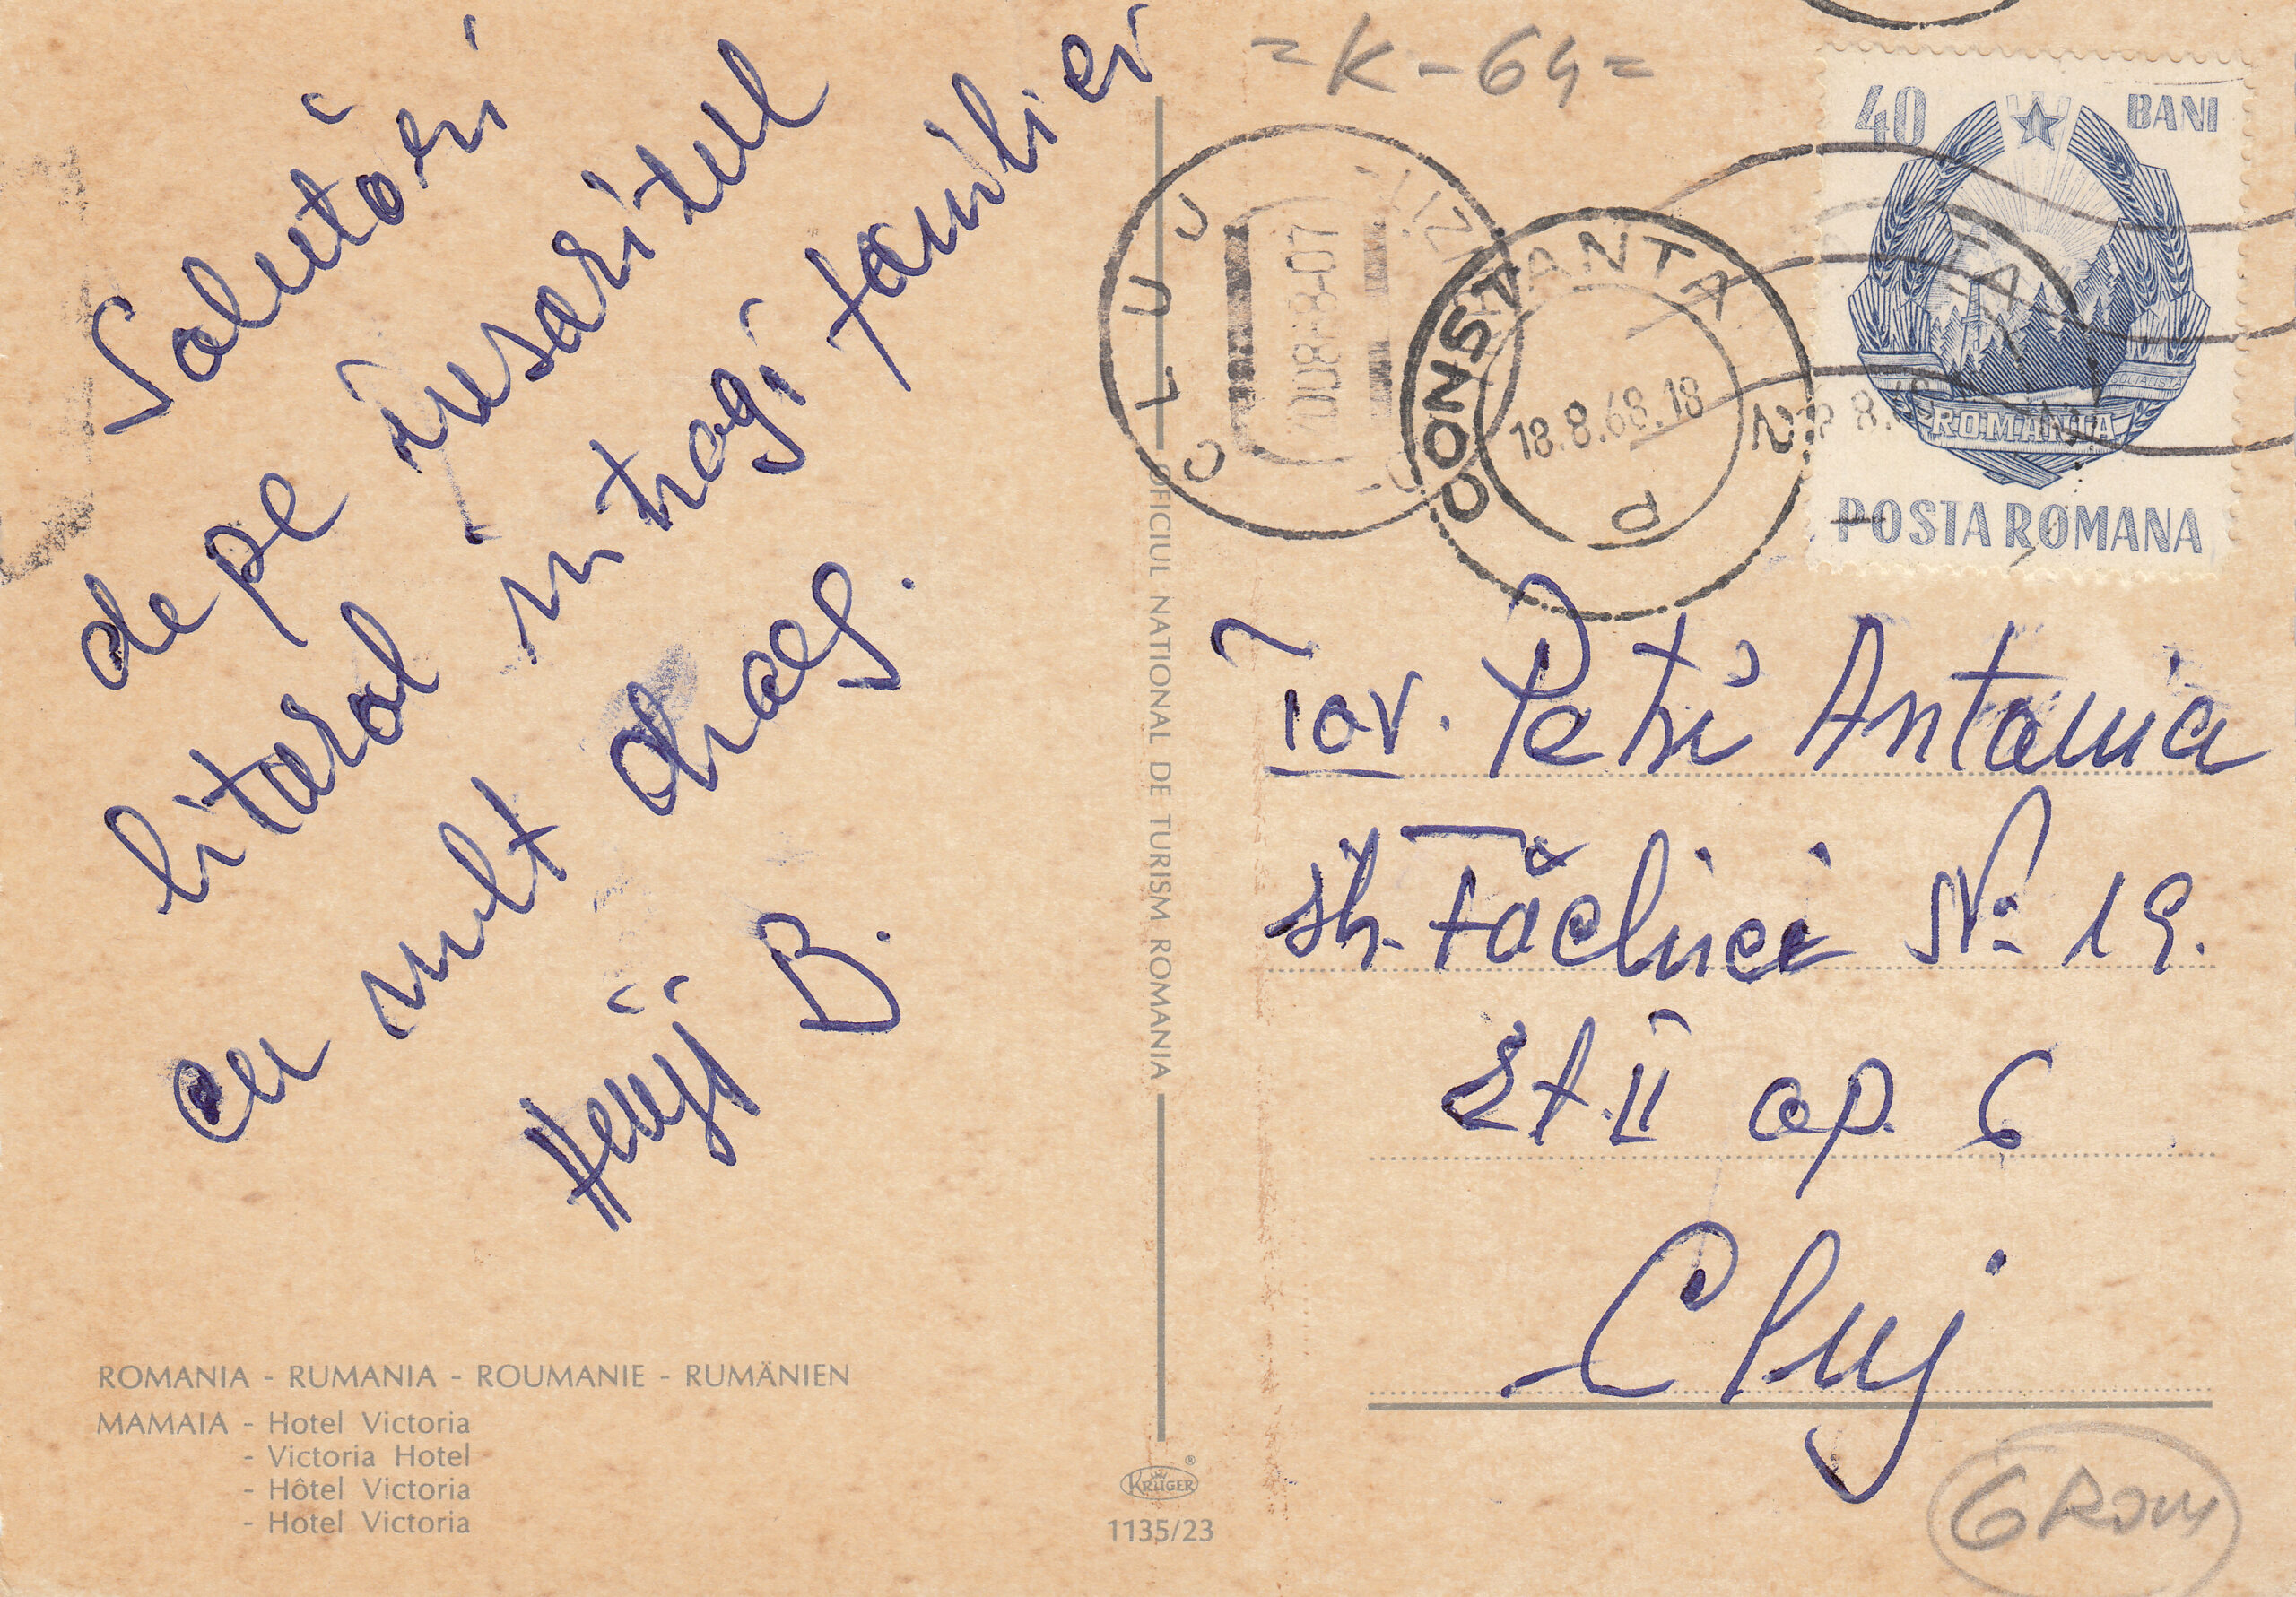 Salutări
de pe însoritul
litoral întregi familiei
cu mult drag.
B.
ROMANIA - RUMANIA - ROUMANIE - RUMÄNIEN
MAMAIA - Hotel Victoria
- Victoria Hotel
- Hôtel Victoria
- Hotel Victoria
OFICIUL NATIONAL DE TURISM ROMANIA
KRÜGER ®
1135/23
=K-64=
40 BANI
ROMÂNIA
POSTA ROMANA
CLUJ
CONSTANTA
18.8.68.18
Tov. Petri Antonia
str. Făcliei No 19.
Et. II ap. 6
Cluj
6 Rom